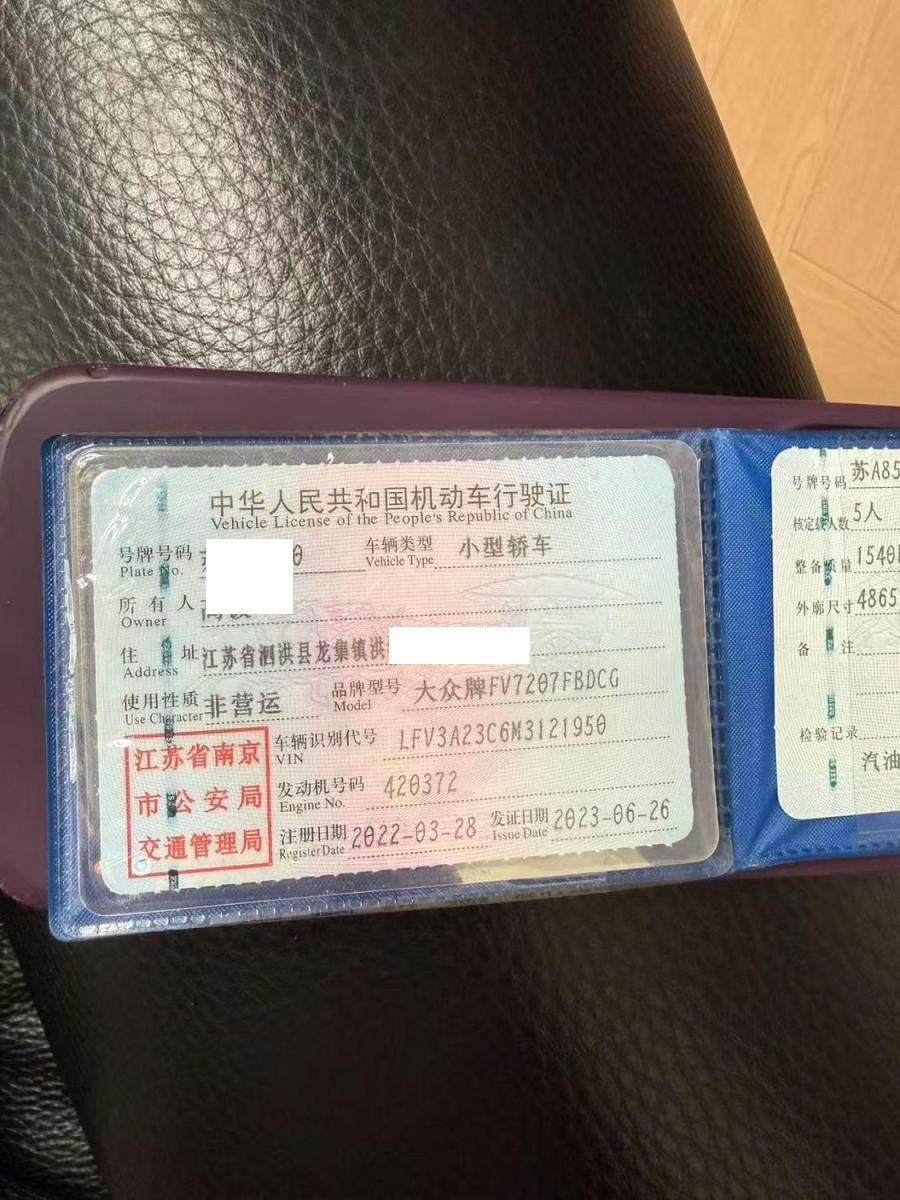 中华人民共和国机动车行驶证
Vehicle License of the People's Republic of China
号牌号码 0 车辆类型 小型轿车
Plate No. Vehicle Type
所有人
Owner
住址 江苏省泗洪县龙集镇洪
Address
使用性质 非营运 品牌型号 大众牌FV7207FBDCG
Use Character Model
江苏省南京
市公安局
交通管理局
车辆识别代号 LFV3A23C6M3121950
VIN
发动机号码 420372
Engine No.
注册日期 2022-03-28 发证日期 2023-06-26
Register Date Issue Date
号牌号码 苏A85
核定载人数 5人
整备质量 1540
外廓尺寸 4865
备注
检验记录
汽油